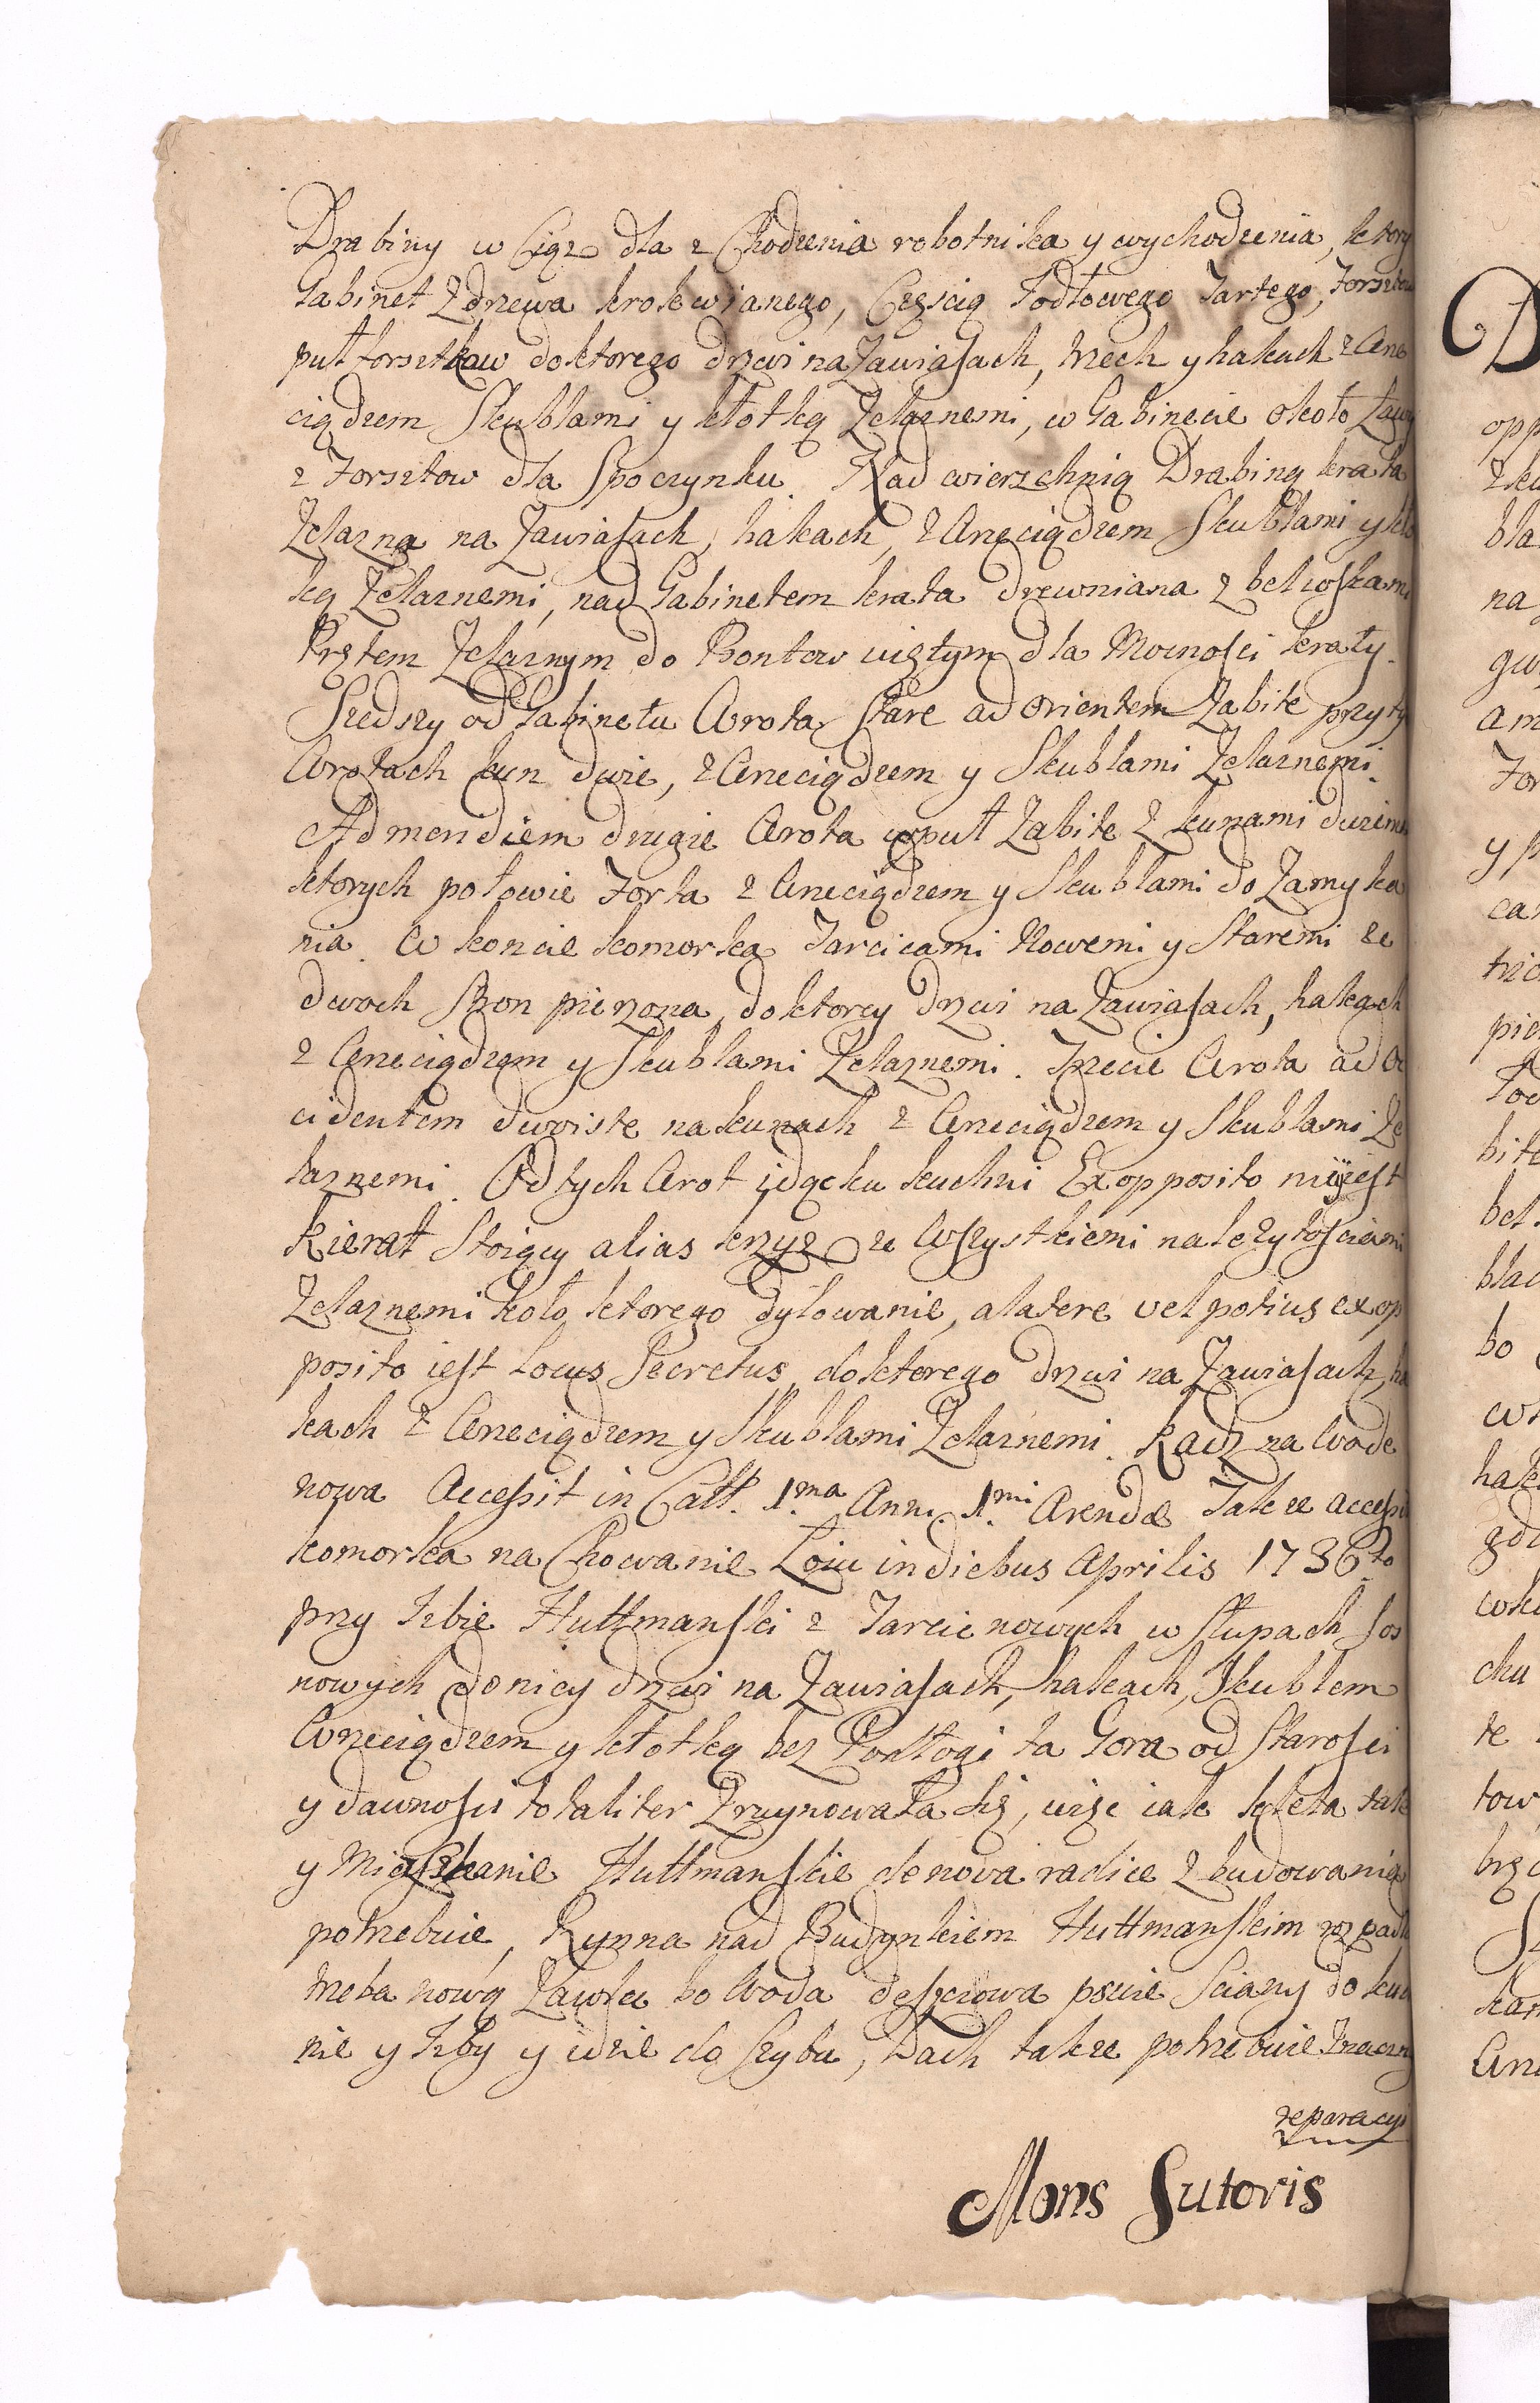 Drabiny w Ciąz dla z Chodzenia robotnika y wychodzenia, ktory
Gabinet Zdrzewa krokwianego, Częscią Jodłowego Tartego, Forszto
puł forsztkow do ktorego drzwi na Zawiasach, trzech y hakach z Wrze
ciądzem Skublami y kłotką Zelaznemi, w Gabinecie około Ławy
z Forsztow dla Spoczynku. Nad wierzchnią Drabiną krata
Zelazna na Zawiasach, hakach, z Wrzeciądzem Skublami y kło
ką Zelaznemi, nad Gabinetem krata drewniana z belioskami
Prętem Zelaznym do Bontow uiętym dla Mocnosci kraty.
Szedszy od Gabinetu Wrota Stare ad Orientem Zabite przy ty
Wrotach kun dwie, z Wrzeciądzem y Skublami Zelaznemi.
Ad meridiem drugie Wrota wpuł Zabite z kunami dwiema
ktorych połowie Forta z Wrzeciądzem y Skublami do Zamyka
nia. W koncie komorka Tarcicami Nowemi y Staremi ze
dwoch Stron pierzona, do ktorey drzwi na Zawiasach, hakach
z Wrzeciądzem y Skublami Zelaznemi. Trzecie Wrota ad Oc
cidentem dwoiste na kunach z Wrzeciądzem y Skublami Że
laznemi. Od tych Wrot idąc ku kuchni Ex opposito niey iest
Kierat Stoiący alias krzyz ze Wszystkiemi nalezytosciami
Zelaznemi koło ktorego dylowanie, a latere vel potius ex op
posito iest Locus Secretus, do ktorego drzwi na Zawiasach, ha
kach z Wrzeciądzem y Skublami Zelaznemi. Kadz na Wode
nowa Accessit in Catt. 1.ma Anni 1.mi Arendæ Takze accessit
komorka na Chowanie Łoiu in diebus Aprilis 1736.to
przy Izbie Huttmanski z Tarcic nowych w Słupach Sos
nowych do nicy drzwi na Zawiasach, hakach, Skublem
Wrzeciądzem y kłotką bez Podłogi ta Gora od Starosci
y dawnosci totaliter Zruynowała się, więc iak kleta tak
y Mięszkanie Huttmanskie de nova radice Zbudowania
potrzebuie, Rynna nad Budynkiem Huttmanskim rozpadla
trzeba nową Zawsze bo Woda deszczowa psuie Sciany do kuch
nie y Izby y idzie do szybu, Dach takze potrzebuie Znaczny
reparacyi
Mons Sutoris
D
opp
bla
na
am
For
y p
car
pie
bite
bel
blac
bo
hak
gdz
chu
te
tow
kan